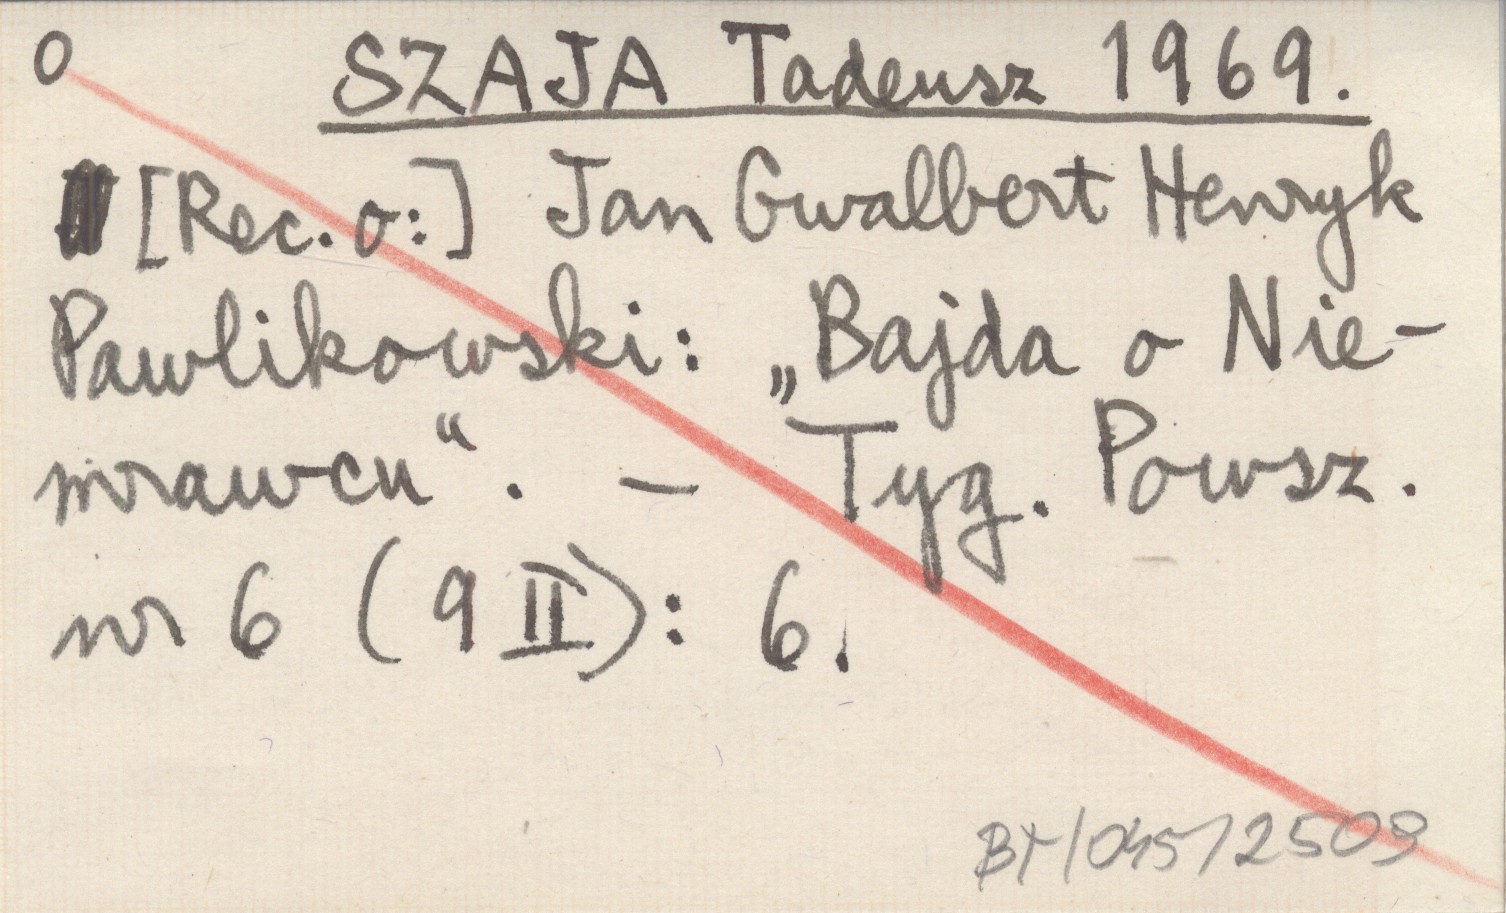 O SZAJA Tadeusz 1969.
[Rec. o:] Jan Gwalbert Henryk
Pawlikowski: „Bajda o Nie-
mrawcu“. — Tyg. Powsz.
nr 6 (9 II): 6.
BT/045/2509